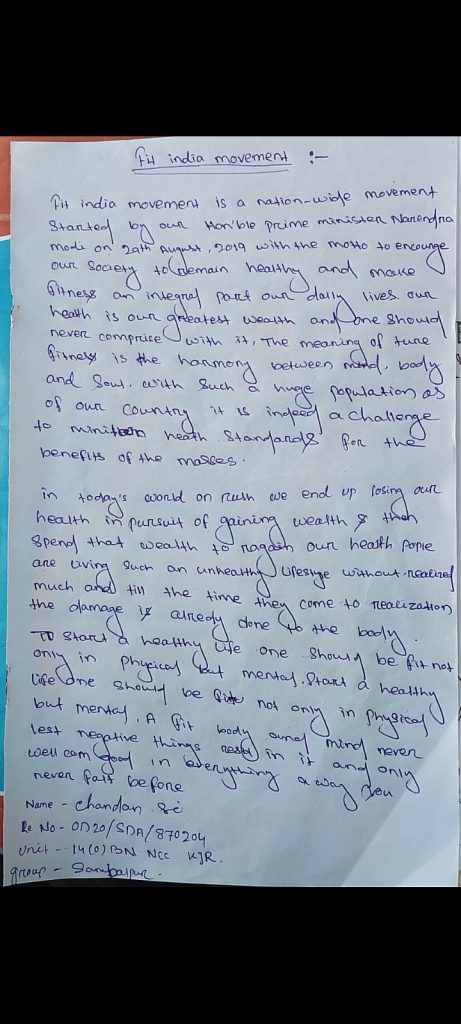 Fit india movement :-
Fit india movement is a nation-wide movement
Started by our Hon'ble prime minister Narendra
modi on 29th August, 2019 with the motto to encourge
our Society to remain healthy and make
fitness an integral part our daily lives. our
health is our greatest wealth and one should
never comprise with it. The meaning of ture
fitness is the harmony between mind, body
and Soul. with Such a huge population as
of our country it is indeed a challenge
to heath Standards for the
benefits of the masses.
in today's world on rush we end up losing our
health in pursuit of gaining wealth & then
Spend that wealth to our health
are living Such an unhealthy without
much and till the time they come to realization
the damage is alredy done to the body.
To Start a healthy life one should be fit not
only in physical but mental. Start a healthy
life one should be fit not only in physical
but mental. A fit body and mind never
lest negative things in it and only
well good in everything a way You
never before
Name - chandan
Re No - OD20/SDA/870204
Unit - 14(O) BN NCC KJR.
group - Sambalpur.